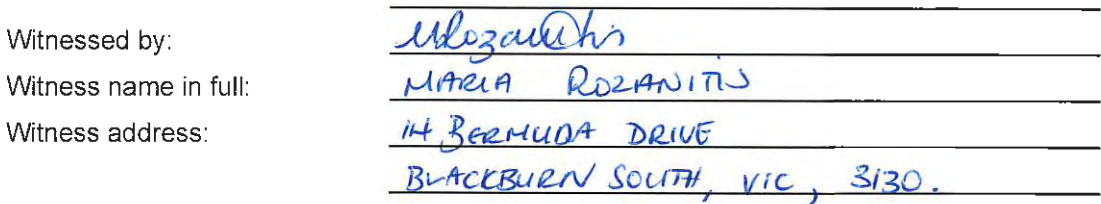 Witnessed by: MRozanitis
Witness name in full: MARIA ROZANITIS
Witness address: 14 BERMUDA DRIVE
BLACKBURN SOUTH, VIC, 3130.